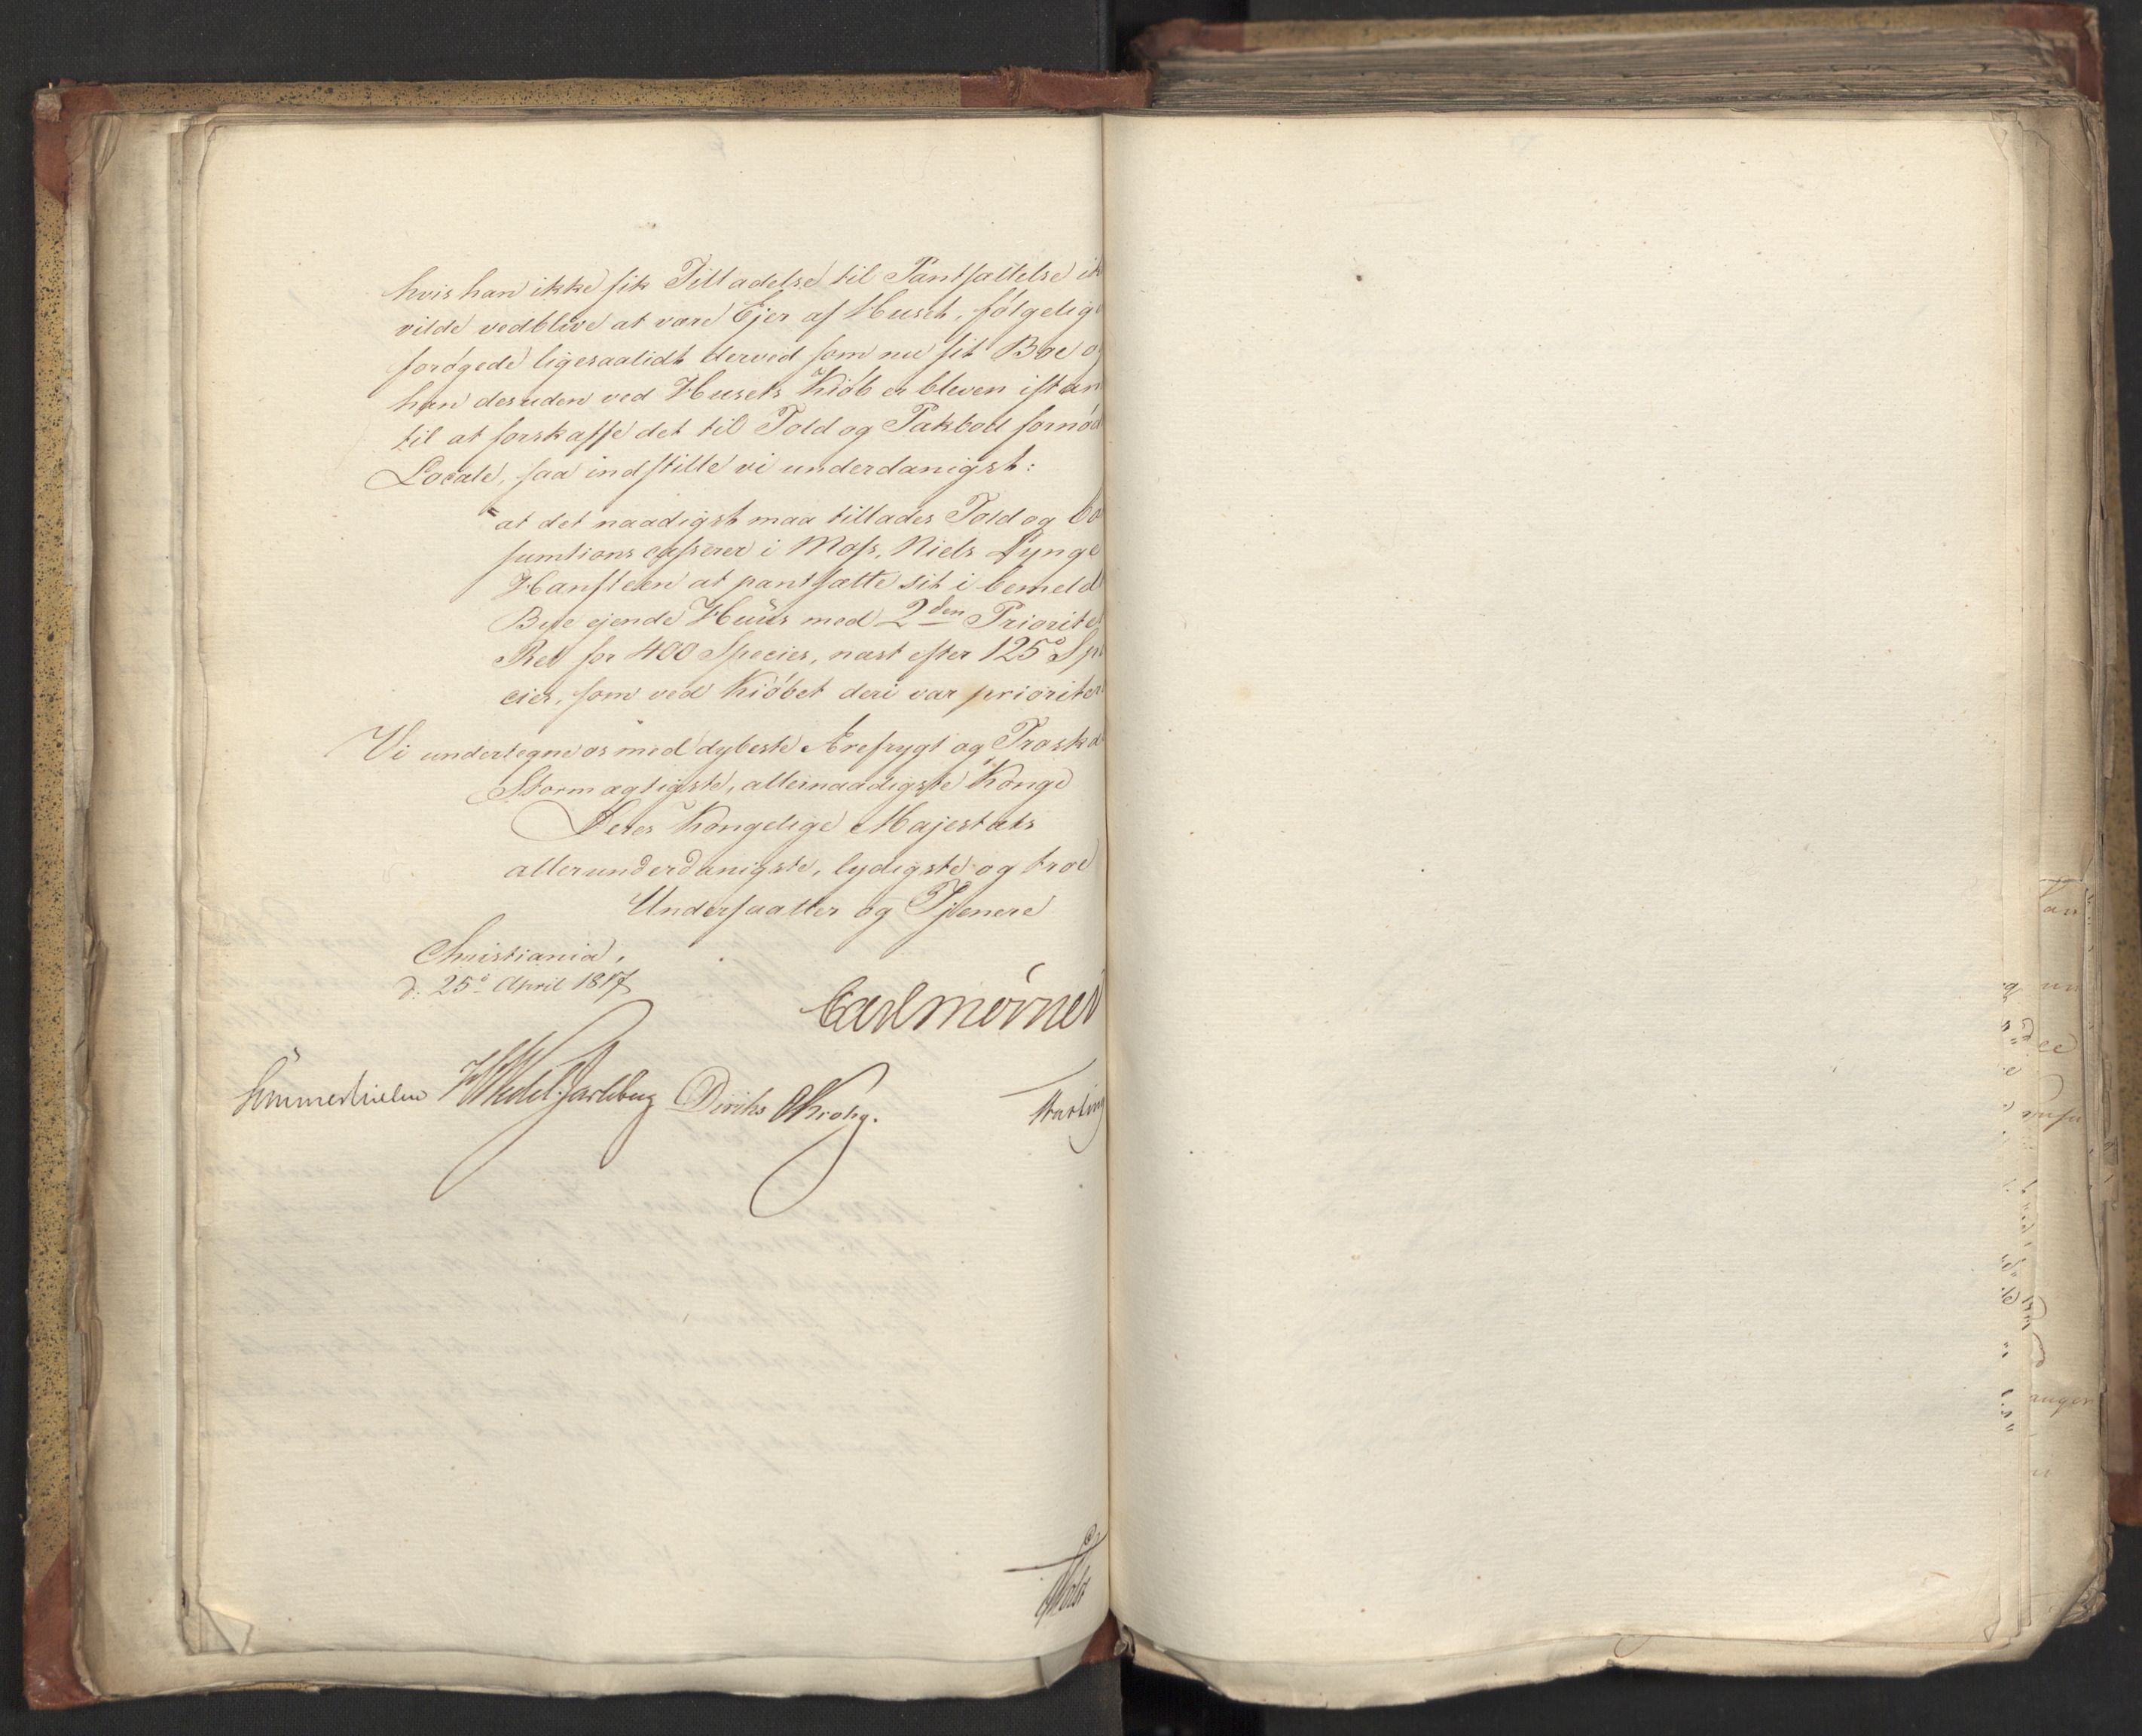 hvis han ikke fik Tilladelse til Pantsættelse ik
vilde vedblive at være Ejer af Huset, følgelig
forøgede ligesaalidt derved som nu sit Boe og
han desuden ved Husets Kiøb er bleven istan
til at forskaffe det til Told og Pakbod fornød
Locale, saa indstille vi underdanigst:
at det naadigst maa tillades Told og Co
sumtionscasserer i Moss, Niels Lynge
Hansteen at pantsætte sit i bemeld
Bye ejende Huus med 2den Priorite
Ret for 400 Species, næst efter 1250 Sp
cier, som ved Kiøbet deri var prioriter
Vi undertegne os med dybeste Ærefrygt og Troska
Stormægtigste, allernaadigste Konge
Deres Kongelige Majestæts
allerunderdanigste, lydigste og troe
Undersaatter og Tjenere
Christiania,
d: 25de April 1817
Carl Mörner
Sommerhielm HWedel-Jarlsberg Diriks CKrohg.
Motzfeldt
Holst